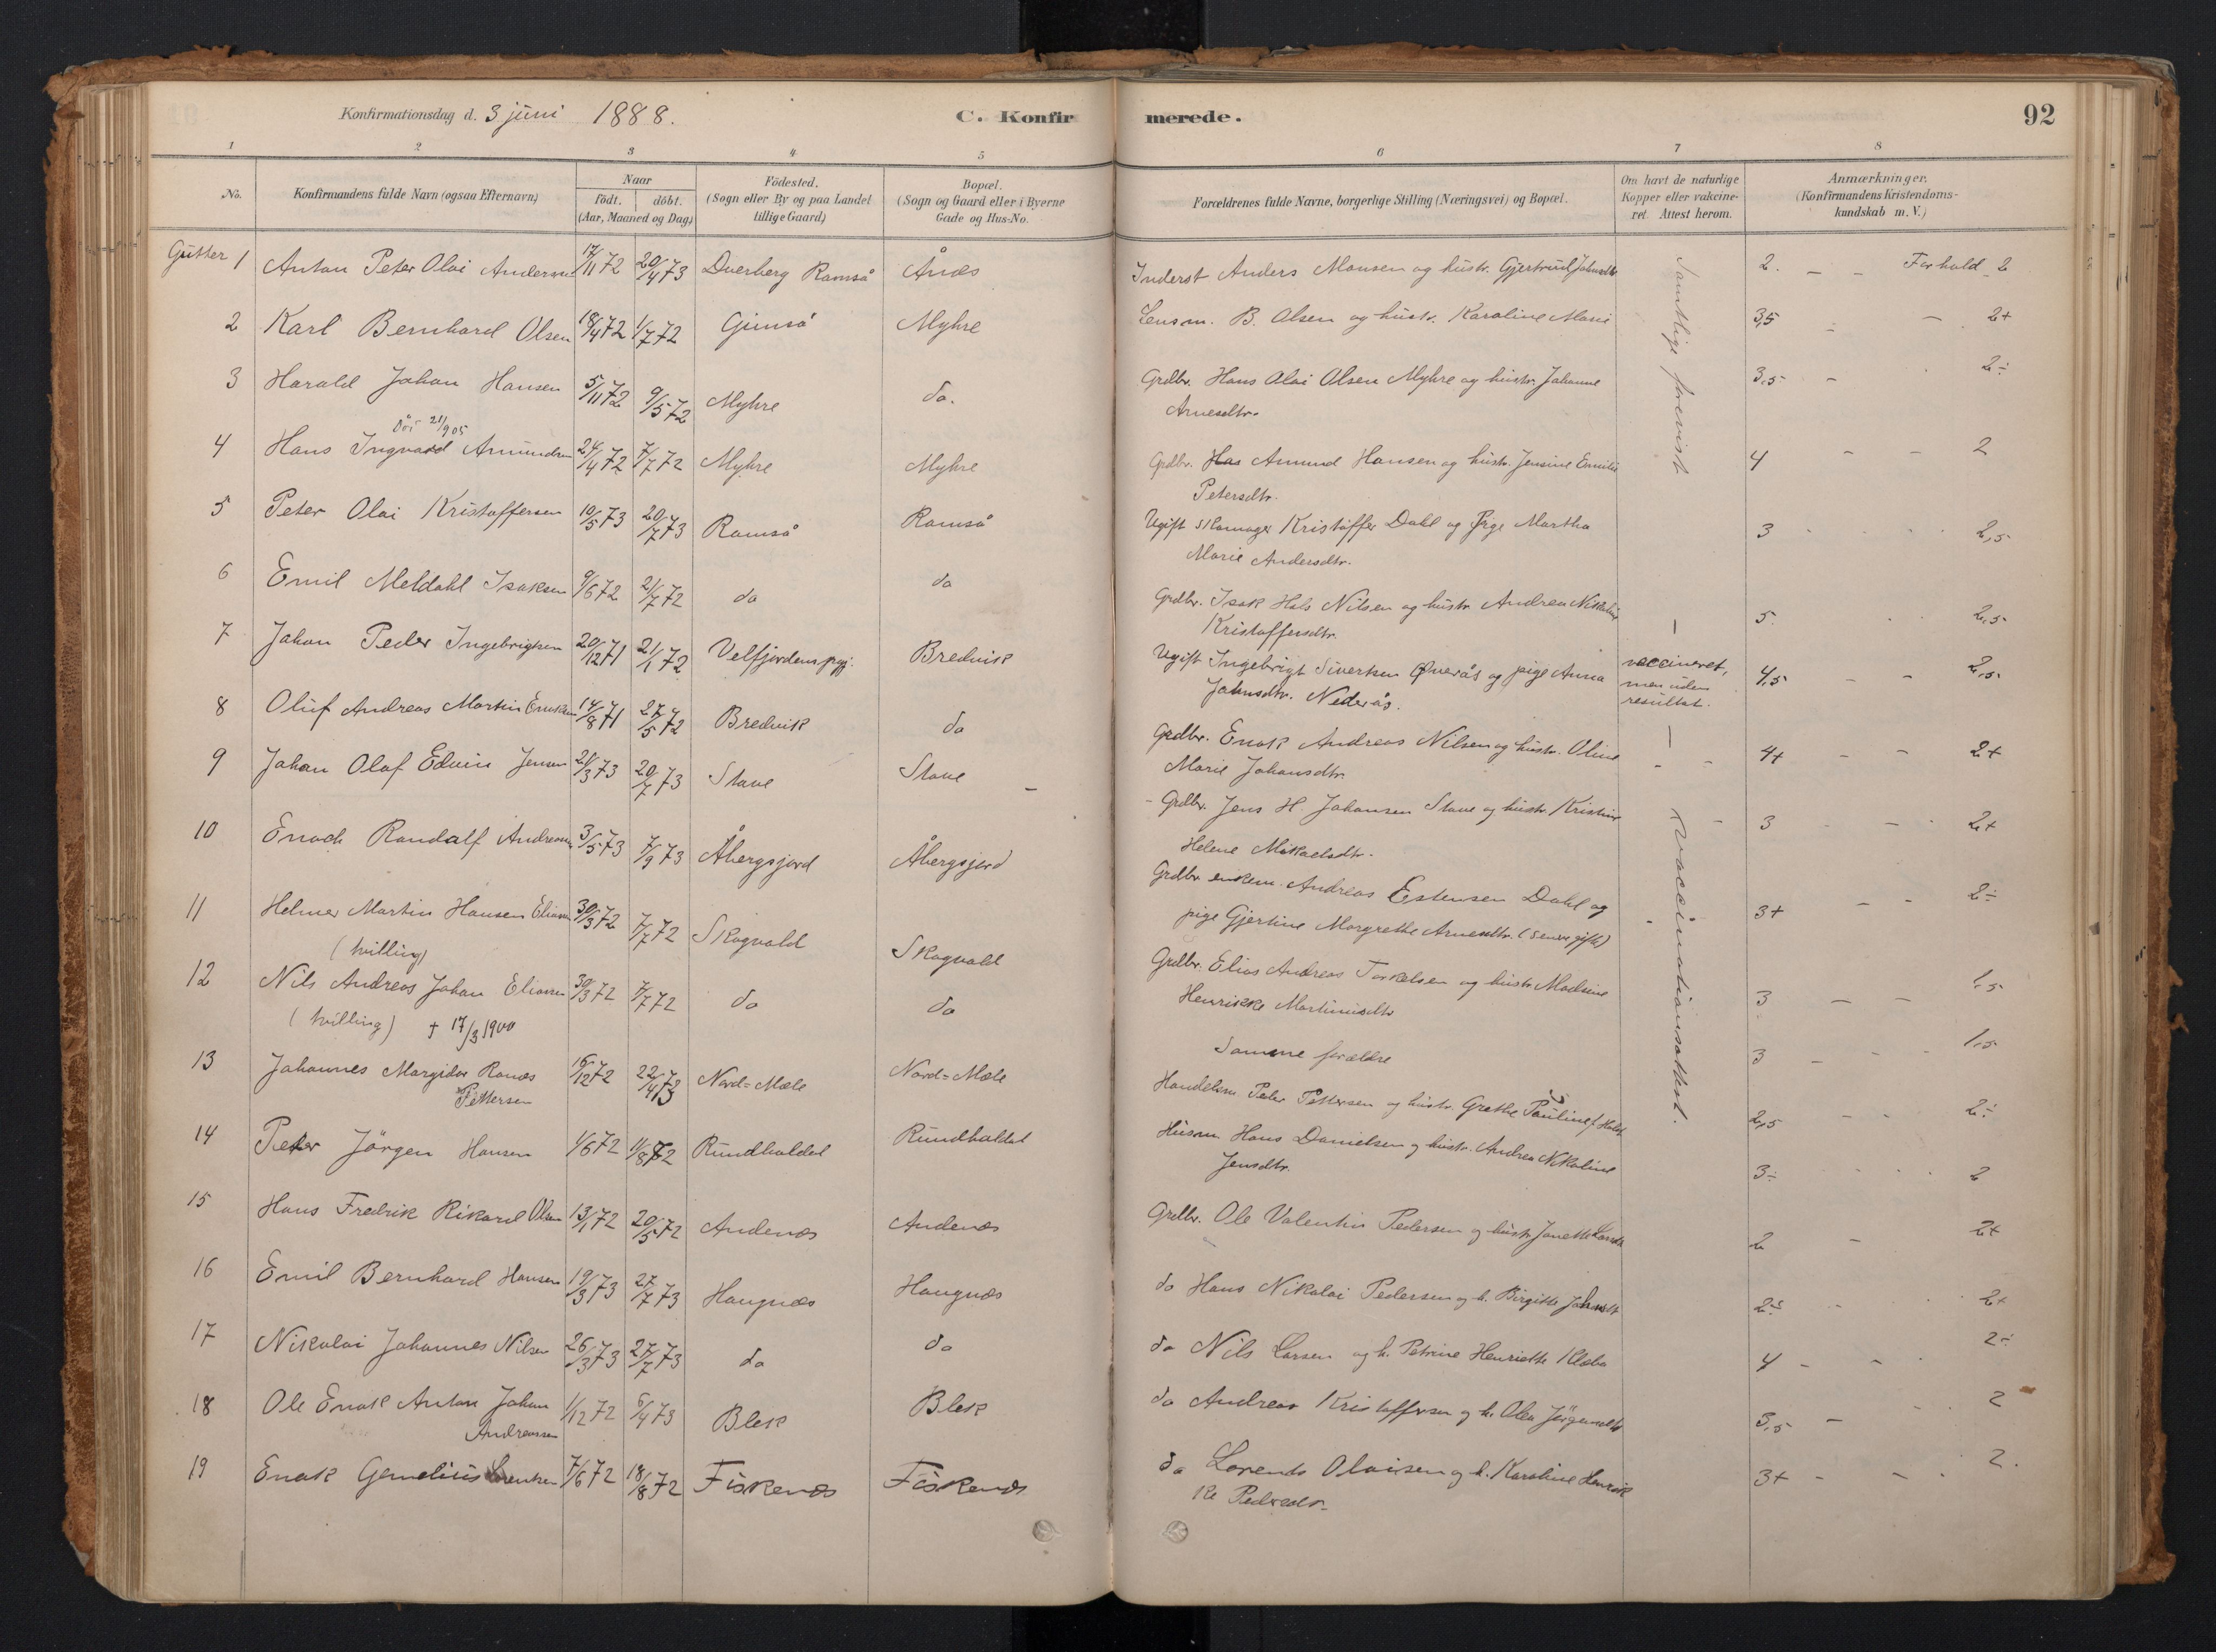 Konfirmationsdag d. 3 juni 1888. C. Konfirmerede. 92
1 2 3 4 5 6 7 8
No. Konfirmandens fulde Navn (ogsaa Efternavn) Naar födt. döbt. (Aar, Maaned og Dag) Födested. (Sogn eller By og paa Landet tillige Gaard) Bopæl. (Sogn og Gaard eller i Byerne Gade og Hus-No. Forældrenes fulde Navne, borgerlige Stilling (Næringsvei) og Bopæl. Om havt de naturlige Kopper eller vakcineret. Attest herom. Anmærkninger. (Konfirmandens Kristendomskundskab m. V.)
Gutter 1 Anton Peter Olai Andersen 17/11 72 20/4 73 Dverberg Ramså Ånes Inderst Anders Monsen og hustr. Gjertrud Johnsdtr. 2. - - Forhold 2
2 Karl Bernhard Olsen 18/4 72 1/7 72 Gimså Myhre Lensm. B. Olsen og hustr. Karoline Marie 3,5 - - 2+
3 Harald Johan Hansen 5/11 72 9/5 72 Myhre do. Grdbr. Hans Olai Olsen Myhre og hustr. Johanne 3,5 - 2÷
Arnesdtr.
Död 21/9 05
4 Hans Ingvald Amundsen 24/4 72 7/7 72 Myhre Myhre Grdbr. Has Amund Hansen og hustr. Jensine Emilie 4 - - 2
Petersdtr.
5 Peter Olai Kristoffersen 10/5 73 20/7 73 Ramså Ramså Ugift skomager Kristoffer Dahl og Pige Martha 3 2,5
Marie Andersdtr.
6 Emil Meldahl Isaksen 9/6 72 21/7 72 do do Grdbr. Isak Hals Nilsen og hustr. Andrea Nikoline 5 2,5
Kristoffersdtr.
7 Johan Peder Ingebrigtsen 20/12 71 21/1 72 Velfjordens prgj. Bredvik Ugift Ingebrigt Sivertsen Øverås og pige Anna vaccineret, men uden resultat. 4,5 - - 2,5
Johnsdtr. Nederås.
8 Oluf Andreas Martin Enoksen 14/8 71 27/5 72 Bredvik do Grdbr. Enok Andreas Nilsen og hustr. Oline 4+ - - 2+
Marie Johansdtr.
9 Johan Olaf Edvin Jensen 21/3 73 20/7 73 Stave Stave Grdbr. Jens H. Johansen Stave og hustr. Kristine 3 - 2+
Helene Mikaelsdtr.
10 Enoch Randalf Andreassen 3/5 73 7/9 73 Åbergsjord Åbergsjord Grdbr. enkem. Andreas Estensen Dahl og 3+ - - 2÷
pige Gjertine Margrethe Arnesdtr. (senere gifte)
11 Helmer Martin Hansen Eliassen 30/3 72 7/7 72 Skogvold Skogvold Grdbr. Elias Andreas Torkelsen og hustr. Madsine 3 - - 1,5
(tvilling) Henrikke Martinusdtr
12 Nils Andreas Johan Eliassen 30/3 72 7/7 72 do do Samme forældre 3 - - 1,5
(tvilling) † 17/3 1900
13 Johannes Margidor Rones 16/12 72 22/4 73 Nord=Mele Nord=Mele Handelsm Peder Pettersen og hustr. Grethe Pauline f. Holst 2,5 - - 2÷
Pettersen
14 Peter Jörgen Hansen 1/6 72 11/8 72 Rundholdet Rundholdet Husm Hans Danielsen og hustr. Andrea Nikoline 3÷ 2
Jensdtr.
15 Hans Fredrik Rikard Olsen 13/1 72 20/5 72 Andenæs Andenæs Grdbr. Ole Valentin Pedersen og hustr. Janette 2 - 2+
16 Emil Bernhard Hansen 19/3 73 27/7 73 Haugnæs Haugnæs do Hans Nikolai Pedersen og h. Birgitte Johnsdtr 2÷ 2+
17 Nikolai Johannes Nilsen 26/3 73 27/7 73 do do do Nils Larsen og h. Petrine Henriette Klæbo 4 - - 2÷
18 Ole Enok Anton Johan 1/12 72 6/4 73 Blek Blek do Andreas Kristoffersen og h. Olea Jörgensdtr 3,5 - 2
Andreassen
19 Enok Gemelius Lorentsen 7/6 72 18/8 72 Fiskenæs Fiskenæs do Lorents Olaisen og h. Karoline Henrik 3+ - - 2.
ke Pedersdtr.
Samtlige forevist
Vaccinationsattest.